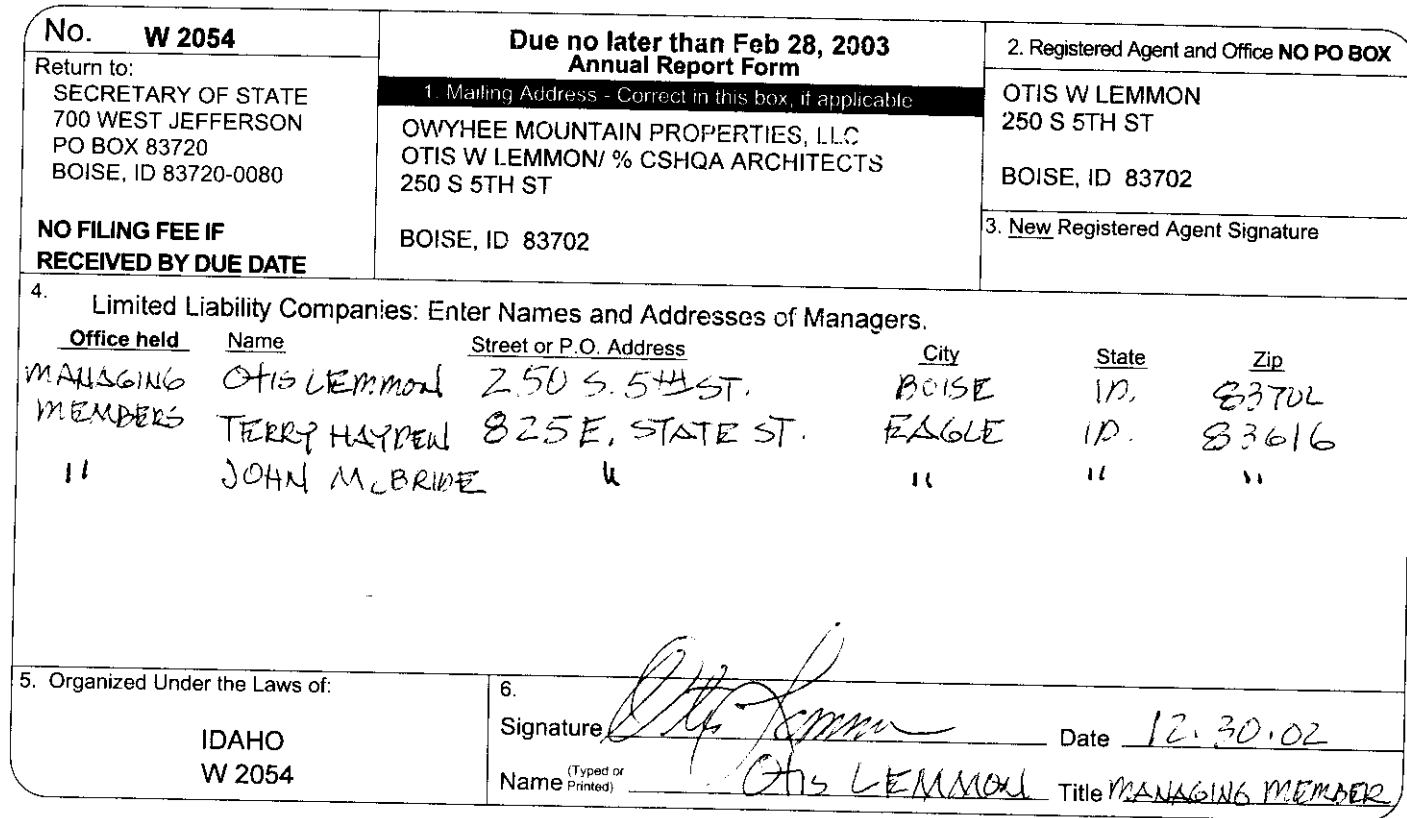 No. W 2054
Return to:
SECRETARY OF STATE
700 WEST JEFFERSON
PO BOX 83720
BOISE, ID 83720-0080
NO FILING FEE IF
RECEIVED BY DUE DATE
Due no later than Feb 28, 2003
Annual Report Form
1. Mailing Address - Correct in this box, if applicable
OWYHEE MOUNTAIN PROPERTIES, LLC
OTIS W LEMMON/ % CSHQA ARCHITECTS
250 S 5TH ST
BOISE, ID 83702
2. Registered Agent and Office NO PO BOX
OTIS W LEMMON
250 S 5TH ST
BOISE, ID 83702
3. New Registered Agent Signature
4. Limited Liability Companies: Enter Names and Addresses of Managers.
Office held Name Street or P.O. Address City State Zip
MANAGING OTIS LEMMON 250 S. 5TH ST. BOISE ID. 83702
MEMBERS TERRY HAYDEN 825 E. STATE ST. EAGLE ID. 83616
" JOHN McBRIDE " " " "
5. Organized Under the Laws of:
IDAHO
W 2054
6.
Signature Otis Lemmon Date 12.30.02
Name (Typed or Printed) OTIS LEMMON Title MANAGING MEMBER